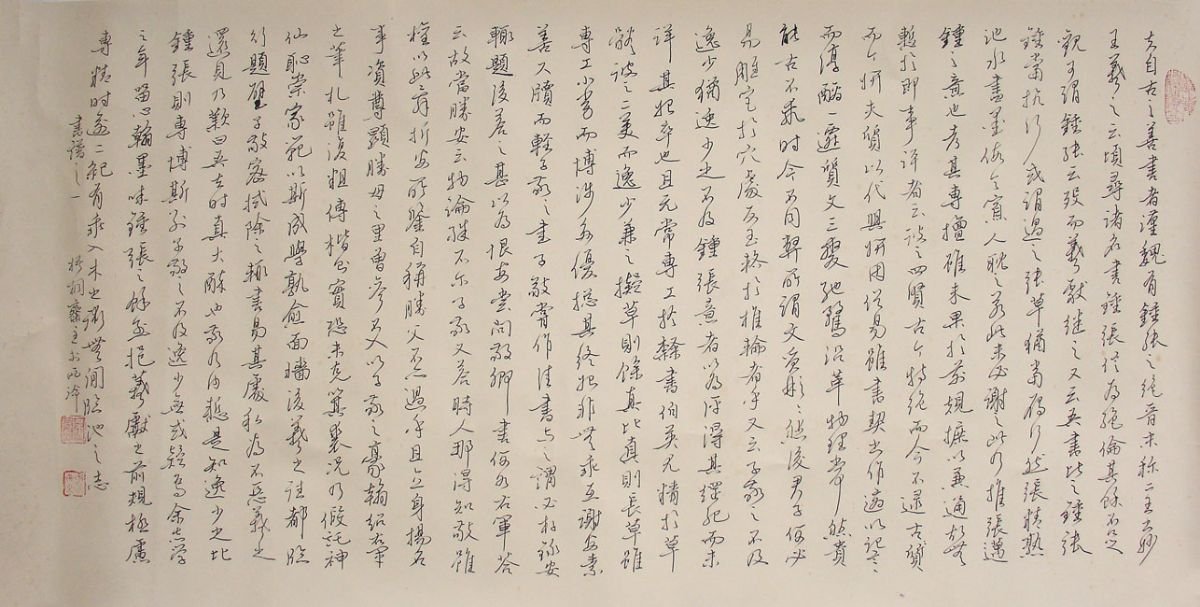 夫自古之善書者漢魏有鍾張之絕晉末稱二王之妙
王羲之云頃尋諸名書鍾張信為絕倫其餘不足
觀可謂鍾張云沒而羲獻繼之又云吾書比之鍾張
鍾當抗行或謂過之張草猶當雁行然張精熟
池水盡墨假令寡人耽之若此未必謝之此乃推張邁
鍾之意也考其專擅雖未果於前規摭以兼通故無
慚於即事評者云彼之四賢古今特絕而今不逮古質
而今妍夫質以代興妍因俗易雖書契之作適以記言
而淳醨一遷質文三變馳騖沿革物理常然貴
能古不乖時今不同弊所謂文質彬彬然後君子何必
易雕宮於穴處反玉輅於椎輪者乎又云子敬之不及
逸少猶逸少之不及鍾張意者以為評得其綱紀而未
詳其始卒也且元常專工於隸書伯英尤精於草
體彼之二美而逸少兼之擬草則餘真比真則長草雖
專工小劣而博涉多優總其終始匪無乖互謝安素
善尺牘而輕子敬之書子敬嘗作佳書與之謂必存錄安
輒題後答之甚以為恨安嘗問敬卿書何如右軍答
云故當勝安云物論殊不爾子敬又答時人那得知敬雖
權以此辭折安所鑒自稱勝父不亦過乎且立身揚名
事資尊顯勝母之里曾參不入以子敬之豪翰紹右軍
之筆札雖復粗傳楷則實恐未克箕裘況乃假託神
仙恥崇家範以斯成學孰愈面牆後羲之往都臨
行題壁子敬密拭除之輒書易其處私為不惡羲之
還見乃歎曰吾去時真大醉也敬乃內慚是知逸少之比
鍾張則專博斯別子敬之不及逸少無或疑焉余志學
之年留心翰墨味鍾張之餘烈挹羲獻之前規極慮
專精時逾二紀有乖入木之術無間臨池之志
書譜之一